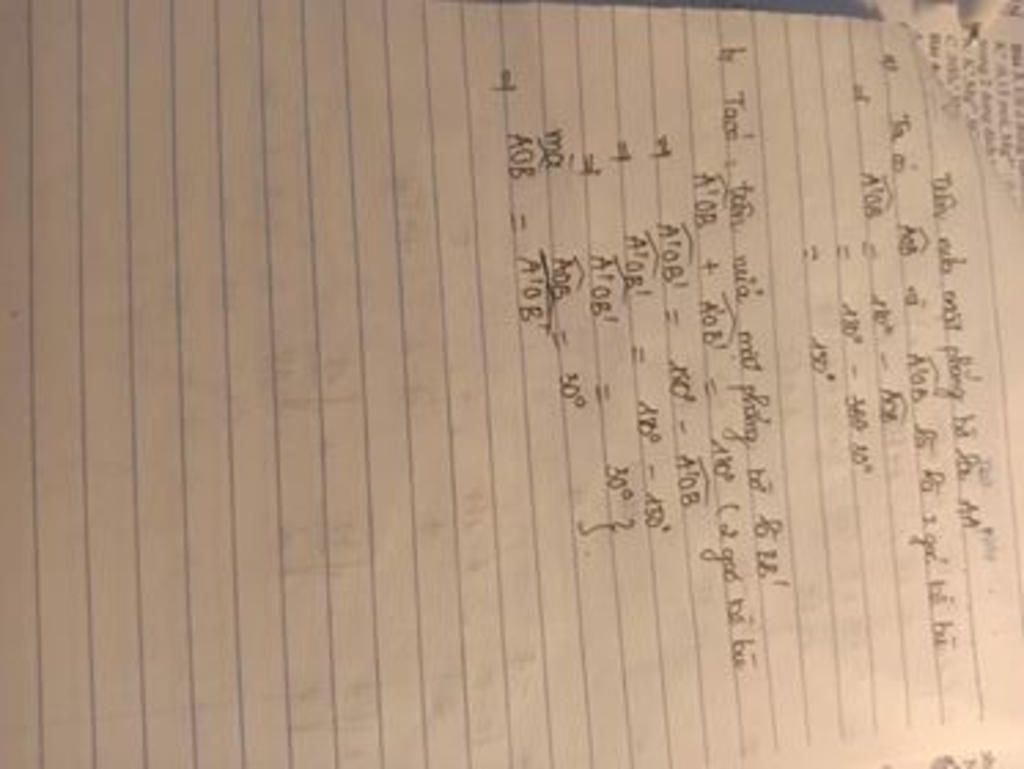 Trên nửa mặt phẳng bờ là AA'
a) Ta có AOB và A'OB là 2 góc kề bù
⇒ A'OB = 180° - AOB
= 180° - 30°
= 150°
b, Ta có: trên nửa mặt phẳng bờ là BB'
A'OB + A'OB' = 180° (2 góc kề bù
⇒ A'OB' = 180° - A'OB
⇒ A'OB' = 180° - 150°
⇒ A'OB' = 30° }
mà AOB = 30°
⇒ AOB = A'OB'